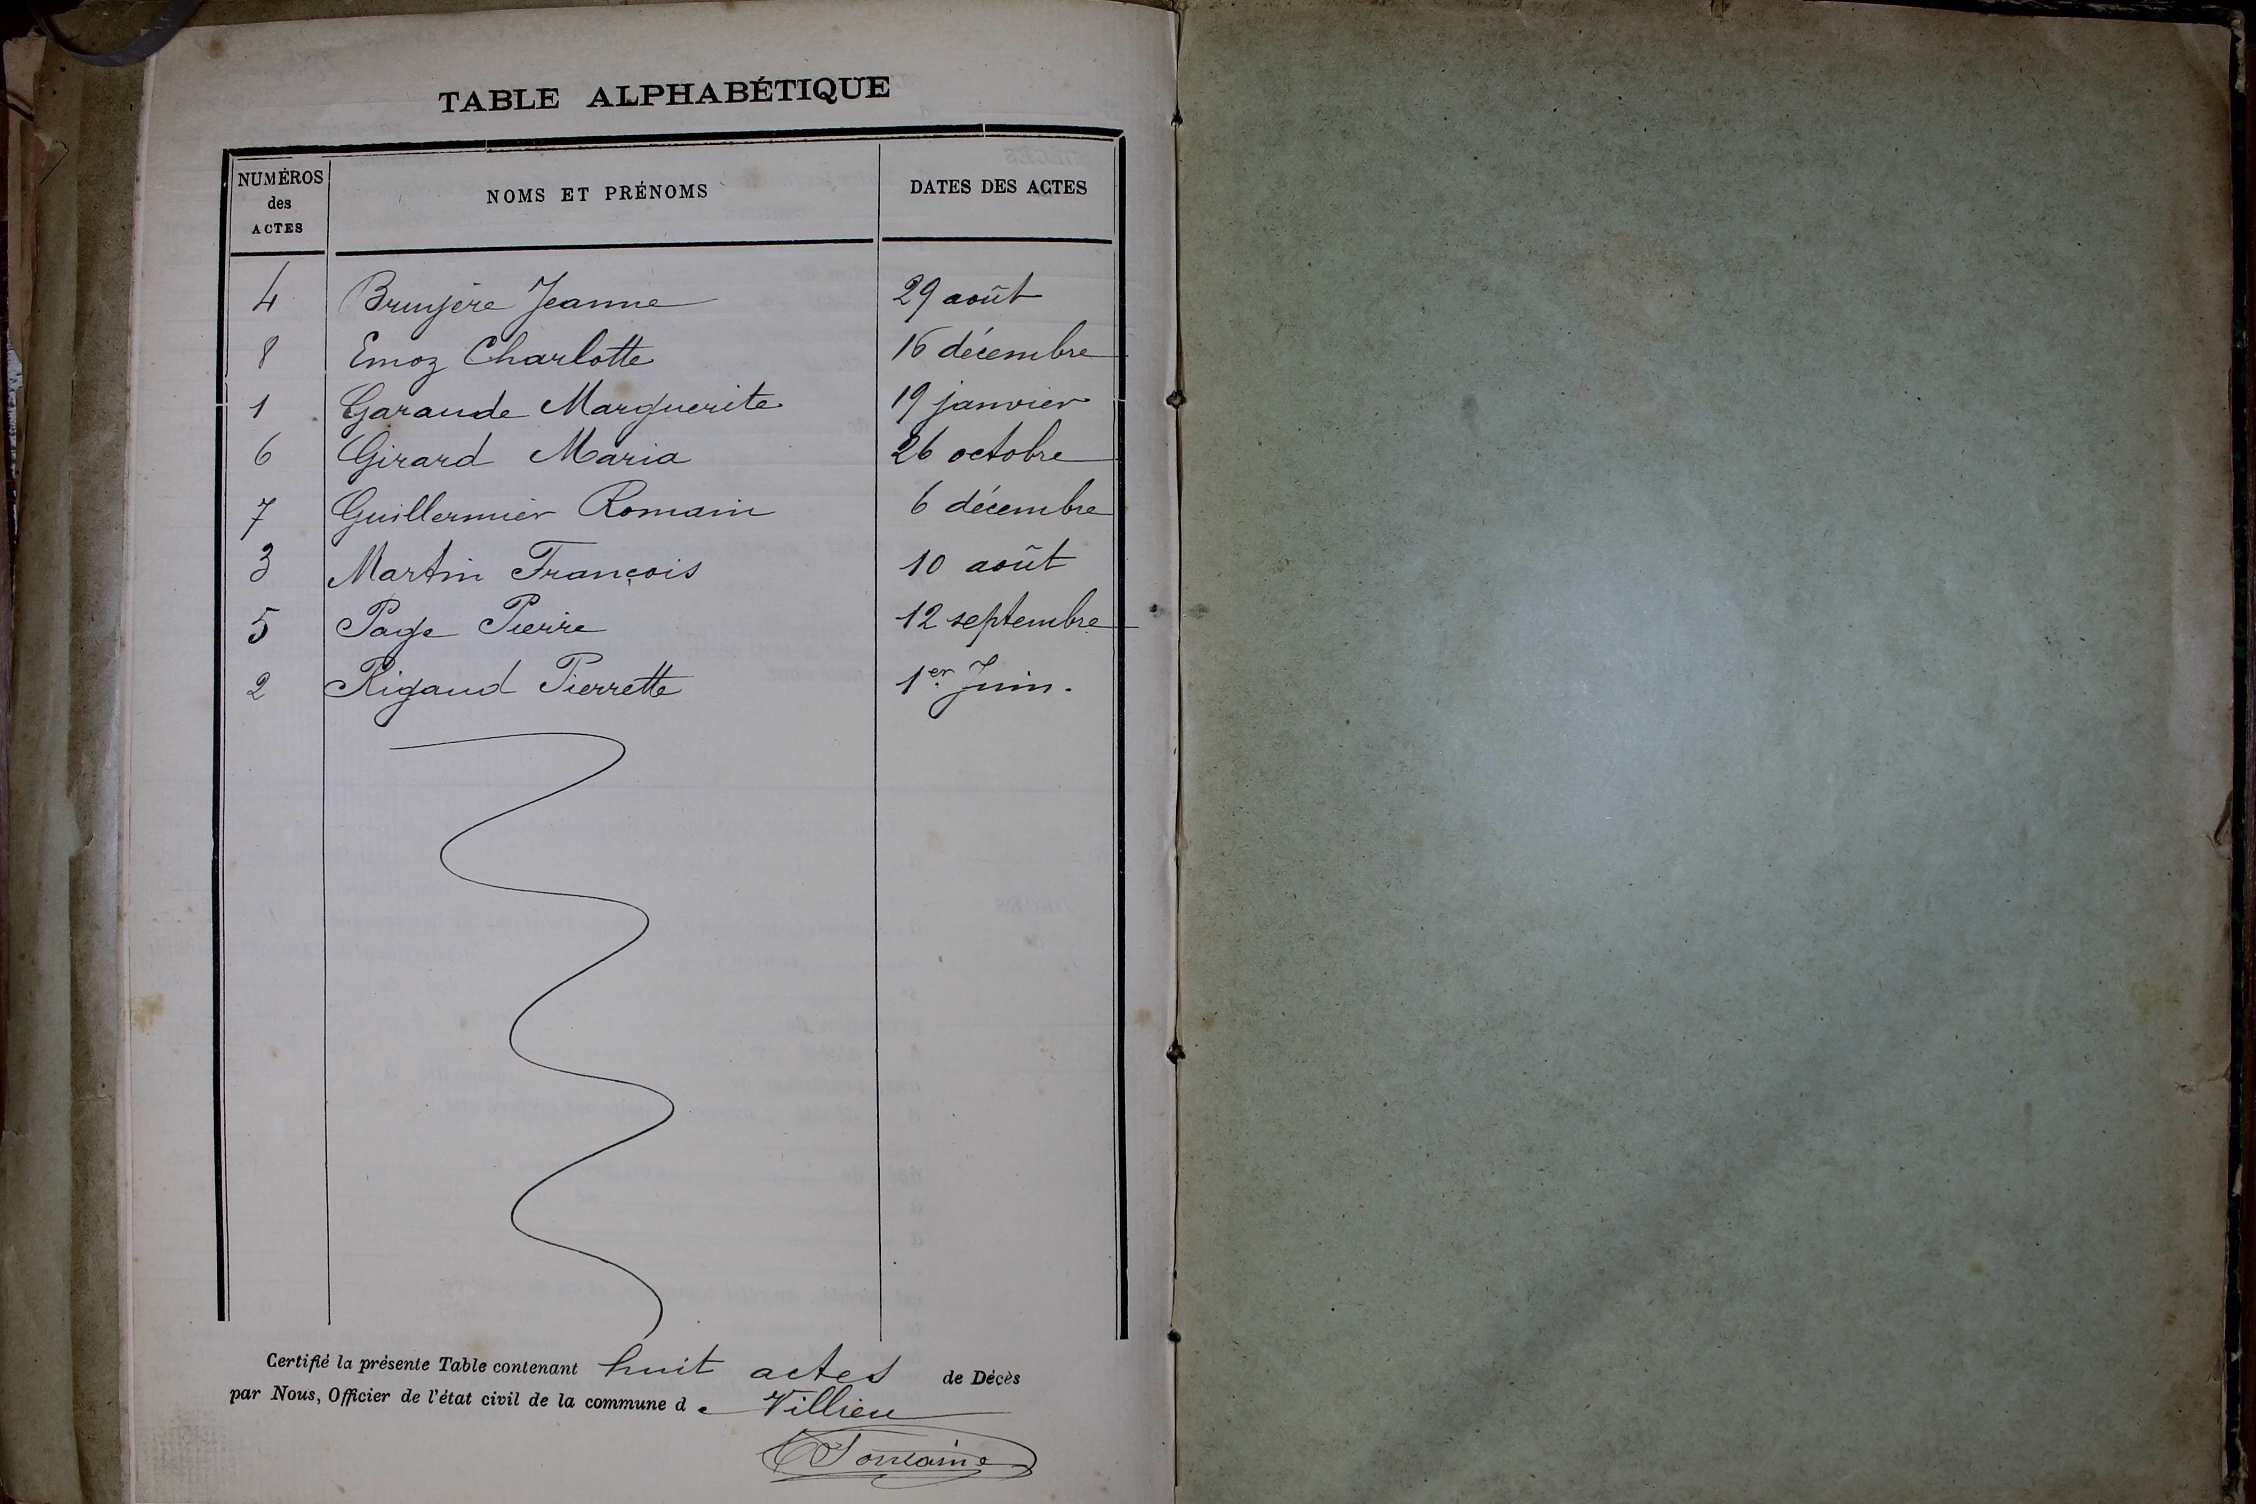 TABLE ALPHABÉTIQUE
NUMÉROS des ACTES NOMS ET PRÉNOMS DATES DES ACTES
4 Bruyère Jeanne 29 août
8 Emoz Charlotte 16 décembre
1 Garaude Marguerite 19 janvier
6 Girard Maria 26 octobre
7 Guillermier Romain 6 décembre
3 Martin François 10 août
5 Page Pierre 12 septembre
2 Rigaud Pierrette 1er Juin.
Certifié la présente Table contenant huit actes de Décès
par Nous, Officier de l'état civil de la commune de Villieu